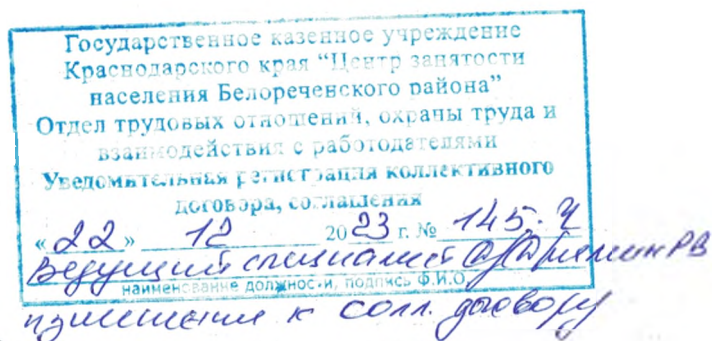 Государственное казенное учреждение
Краснодарского края "Центр занятости
населения Белореченского района"
Отдел трудовых отношений, охраны труда и
взаимодействия с работодателями
Уведомительная регистрация коллективного
договора, соглашения
«22» 12 2023 г. № 145-
Ведущий специалист РВ
наименование должности, подпись Ф.И.О.
изменения к колл. договору